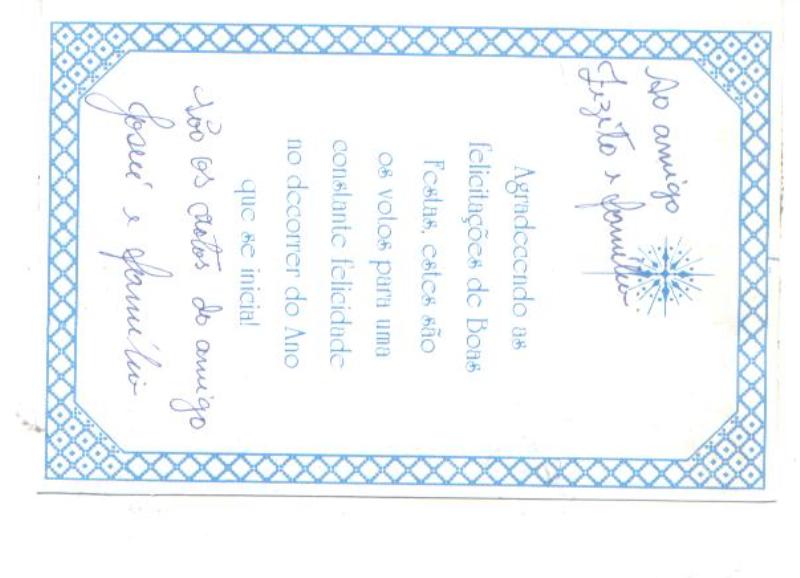 Ao amigo
Zezito e família
Agradecendo as
felicitações de Boas
Festas, estes são
os votos para uma
constante felicidade
no decorrer do Ano
que se inicia!
São os votos do amigo
Josué e família